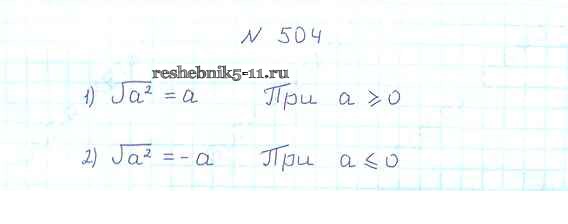 № 504
reshebnik5-11.ru
1) √a² = a При a ⩾ 0
2) √a² = - a При a ⩽ 0